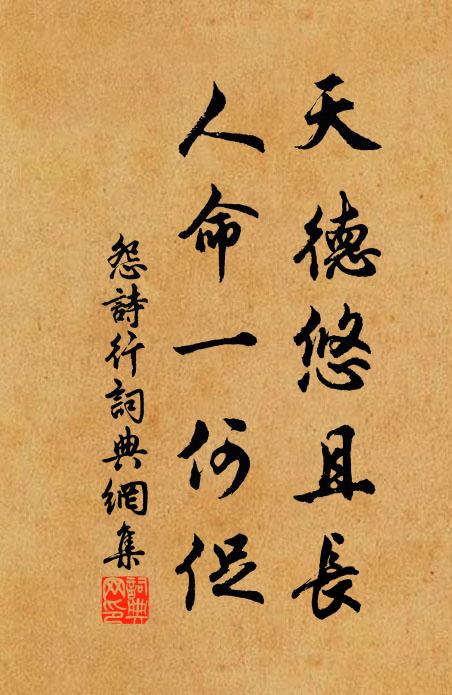 天德悠且長
人命一何促
怨詩行詞典網集
詞典網印